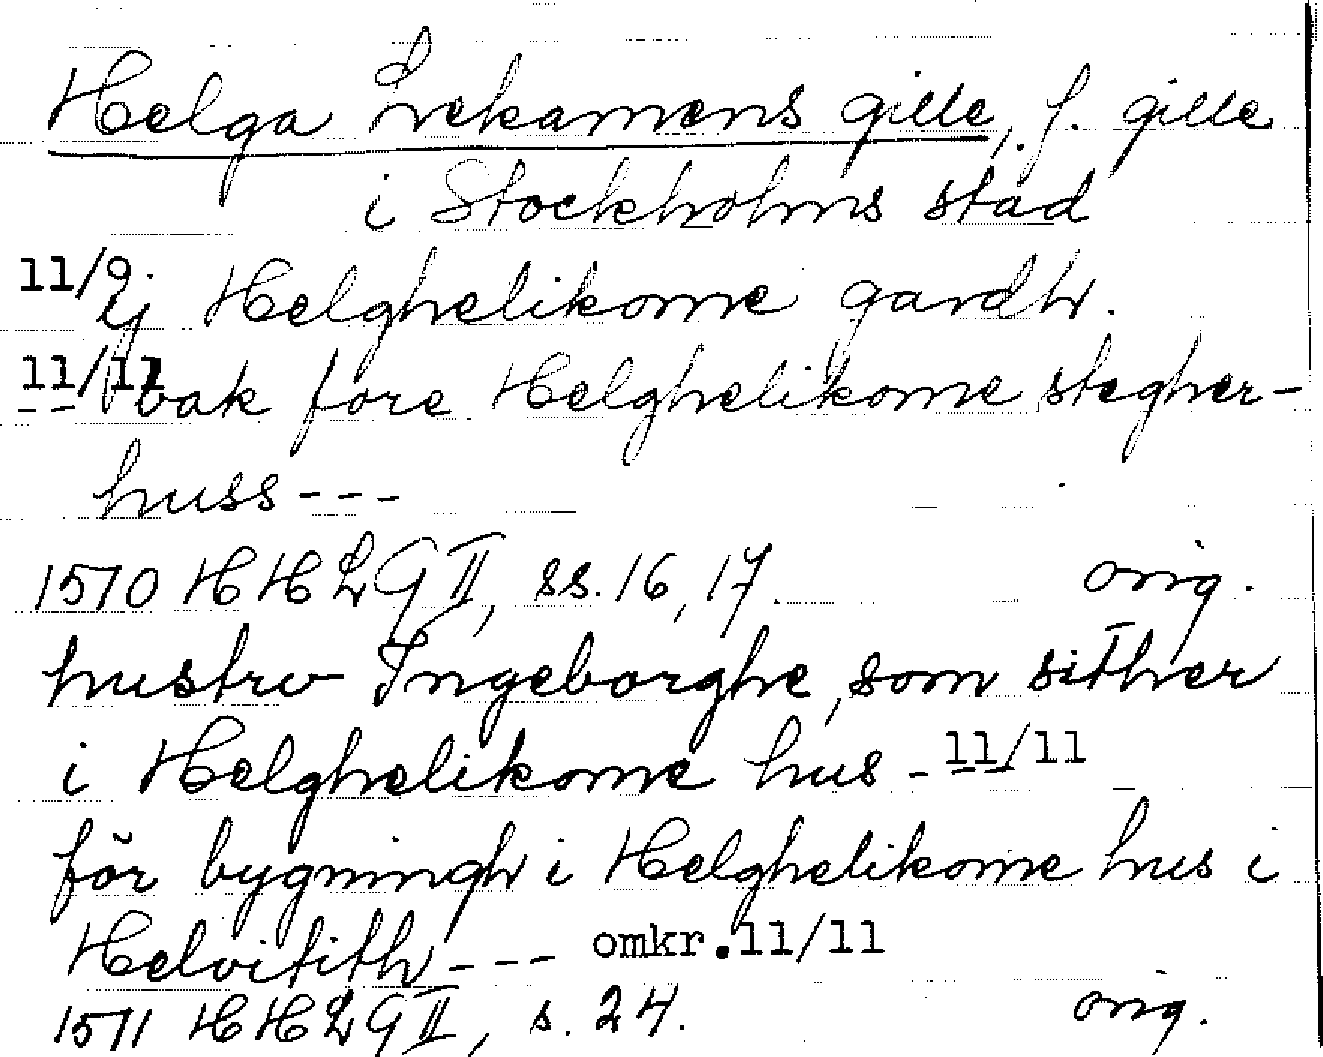 Helga Lekamens gille, f. gille
i Stockholms stad
11/9 ij Helghelikome gardh.
11/11 bak fore Helghelikome stegher-
huss - - -
1510 HHLG II, ss. 16, 17. orig.
hustrv Ingeborghe, som sither
i Helghelikome hus - - - 11/11
för bygningh i Helghelikome hus i
Helvitith - - - omkr. 11/11
1511 HHLG II, s. 24. orig.